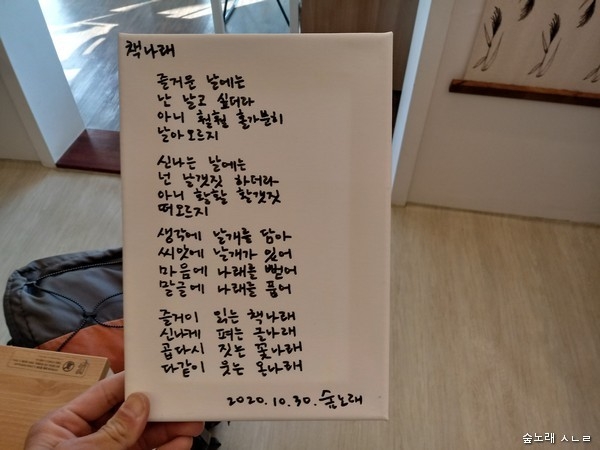 책나래
즐거운 날에는
난 날고 싶더라
아니 훨훨 홀가분히
날아오르지
신나는 날에는
넌 날갯짓 하더라
아니 활활 활갯짓
떠오르지
생각에 날개를 담아
씨앗에 날개가 있어
마음에 나래를 뻗어
말글에 나래를 품어
즐거이 읽는 책나래
신나게 펴는 글나래
곱다시 짓는 꽃나래
다같이 웃는 온나래
2020.10.30. 숲노래
숲노래 ㅅㄴㄹ